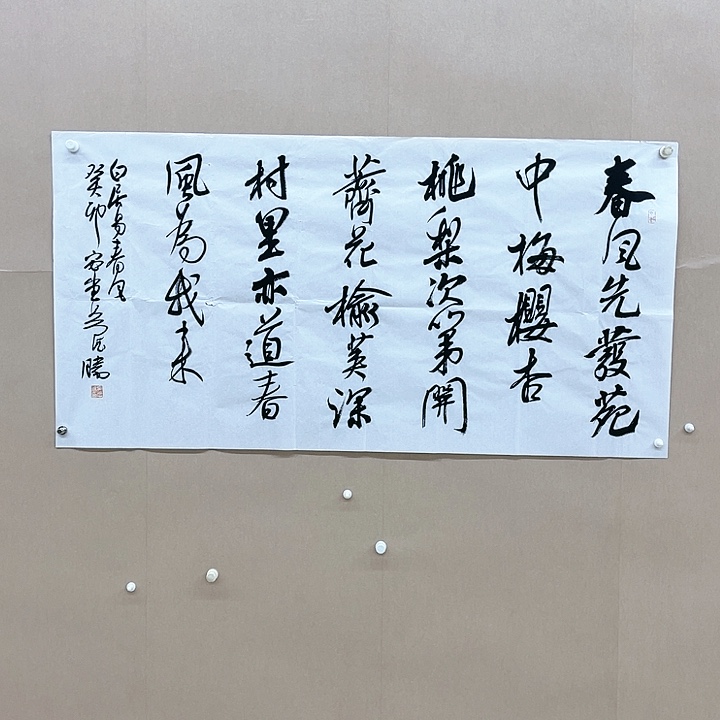 春风先發苑
中梅櫻杏
桃梨次第開
薺花榆莢深
村里亦道春
風為我來
白居易春风
癸卯